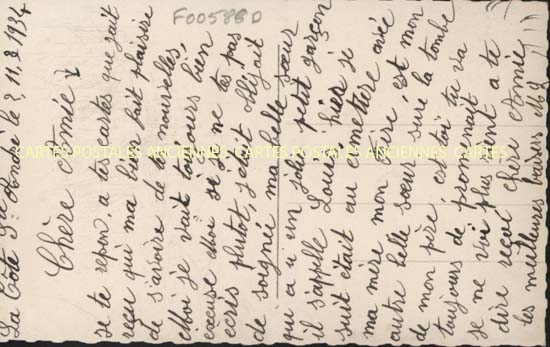 F00588D
La Côte St André le 2, 11.8 1934
Chère Amie
je te repon, a tes cartes que jait
reçu qui ma bien fait plaisir
de s'avoire de tes nouvelles,
Moi je vait toujours bien
excuse moi si je ne tes pas
ecris plutot, j'etait obligait
de soignée ma belle sœur
qui a u un jolie petit garçon
il s'appelle Louis, hier je
suit était au cimetiere avec
ma mère mon frère, et mon
autre belle sœur sure la tombe
de mon père, et toi tu va
toujours de promenait
je ne voi plus rient a te
dire reçoi chère Amie
les meilleures baisers
CARTES POSTALES ANCIENNES CARTES POSTALES ANCIENNES CARTES POSTALES ANCIENNES